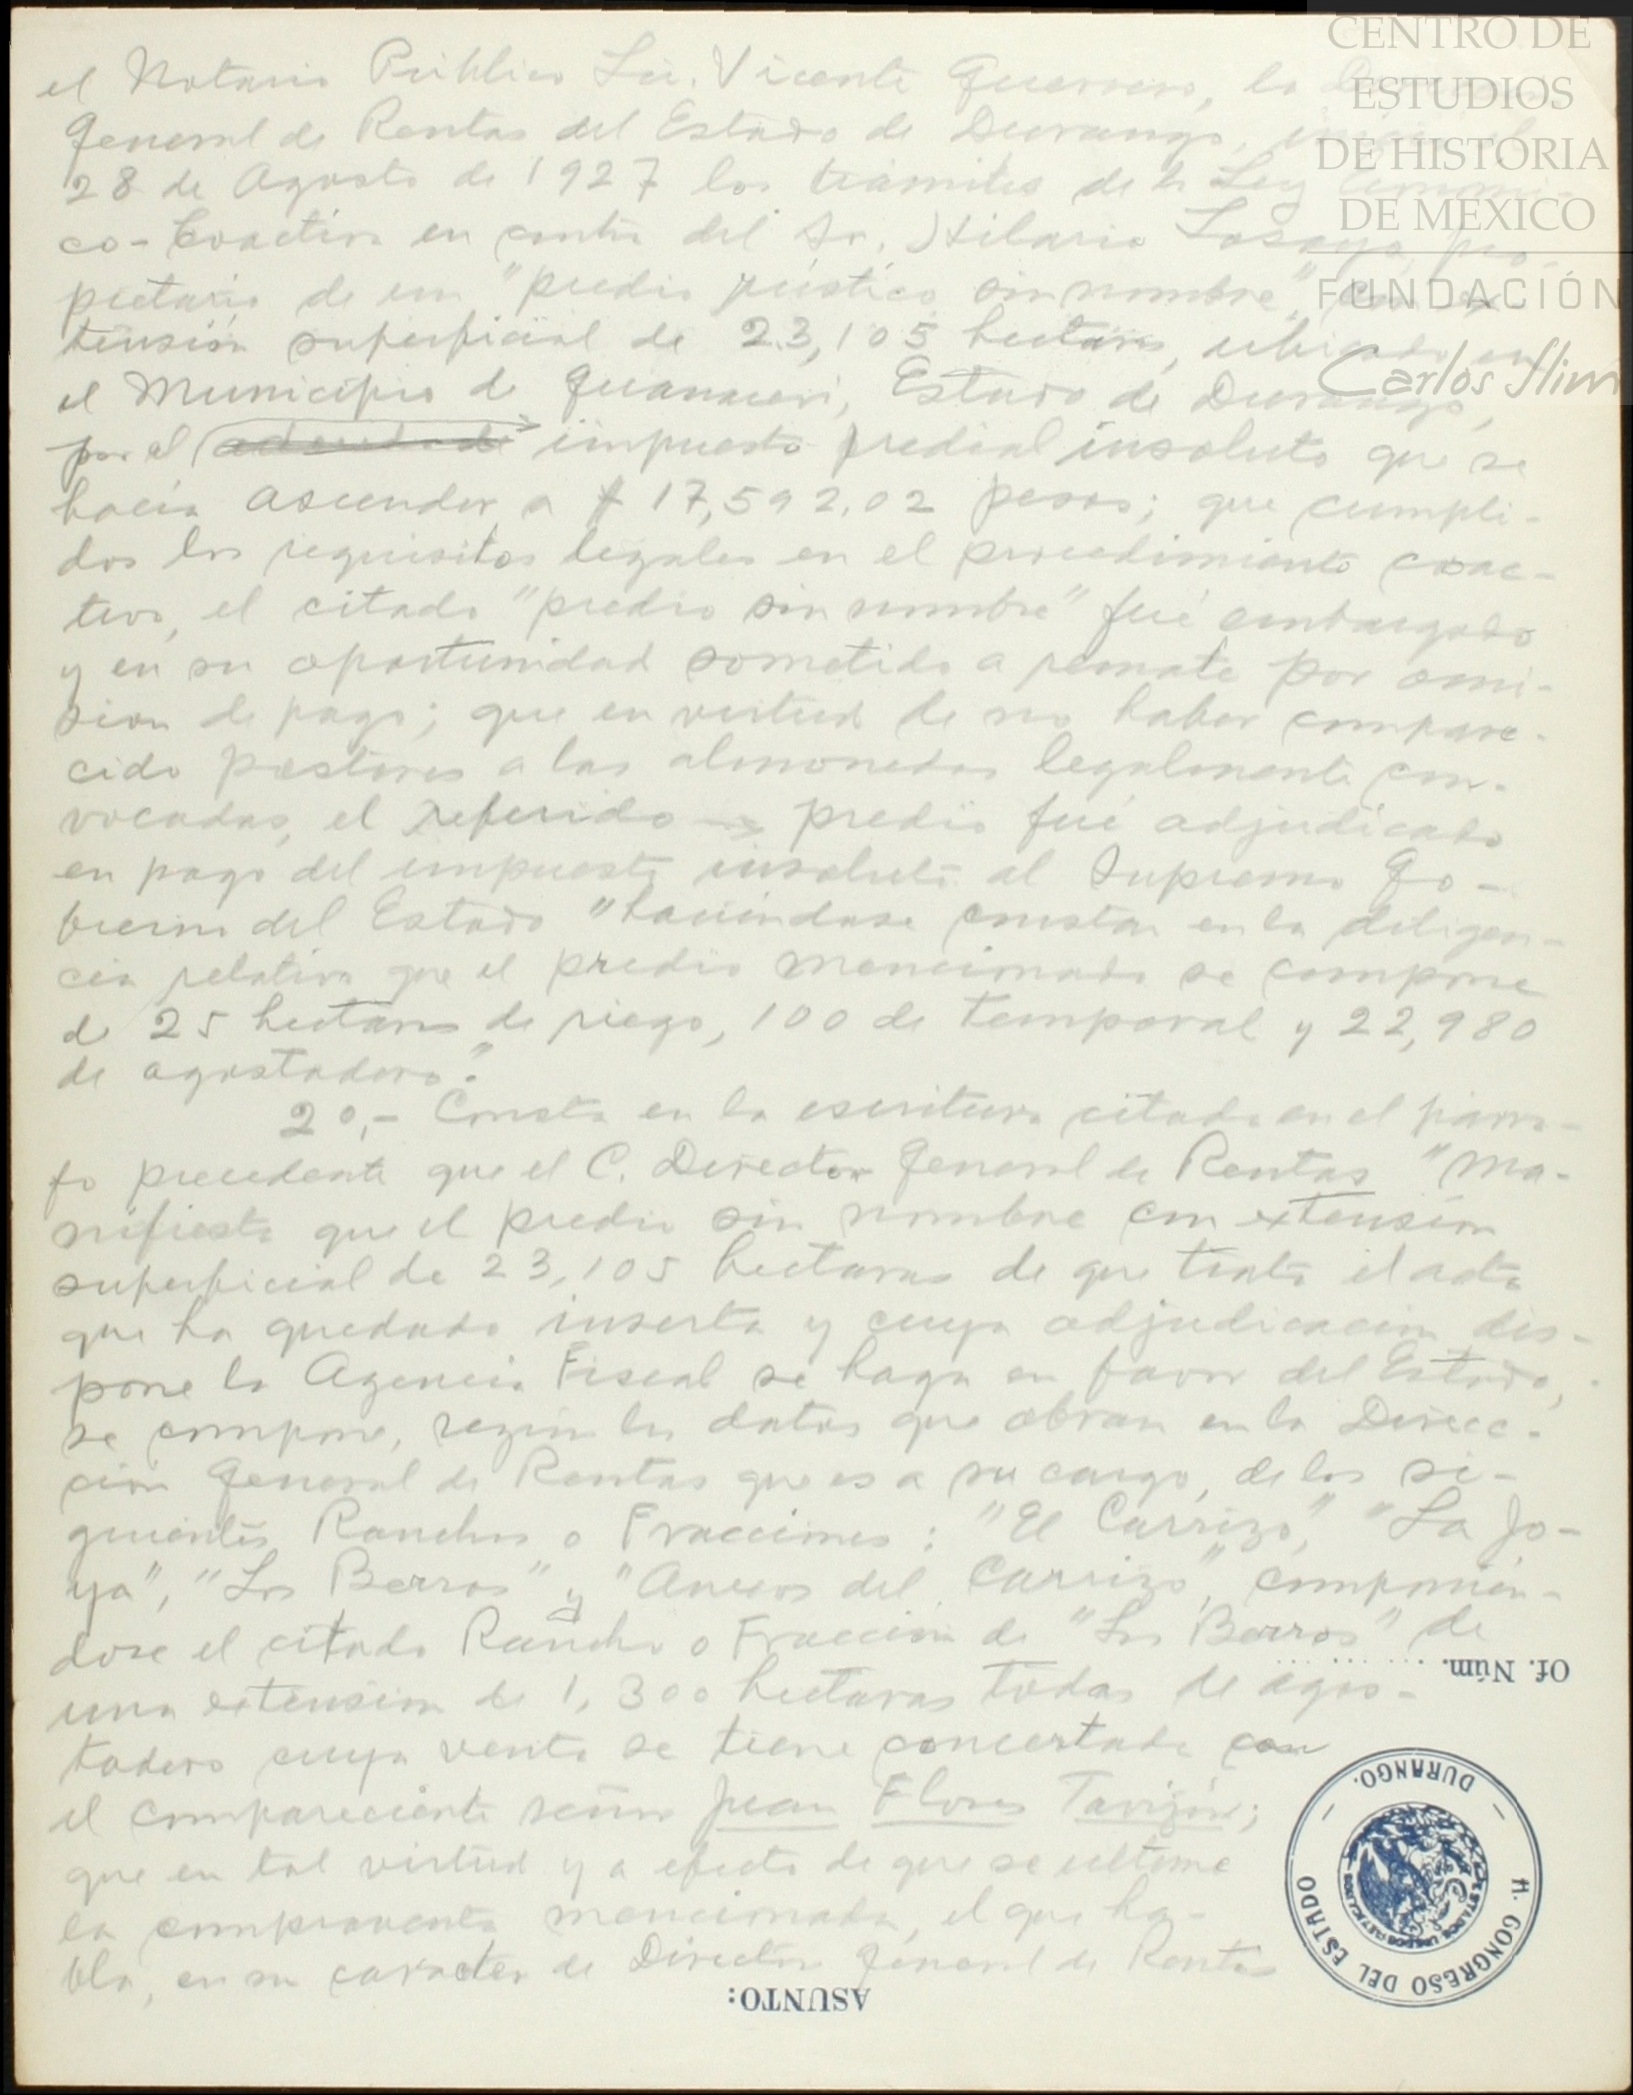 el Notario Público Lic. Vicente Guerrero, la Dirección
General de Rentas del Estado de Durango, inició el
28 de Agosto de 1927 los trámites de la Ley
co-Coactiva en contra del Sr. Hilario Lozoya, pro-
pietario de un "predio rústico sin nombre", con ex
tensión superficial de 23,105 hectáreas, ubicado en
el Municipio de Guanaceví, Estado de Durango,
por el impuesto predial insoluto que se
hacía ascender a $ 17,592.02 pesos; que cumpli-
dos los requisitos legales en el procedimiento coac-
tivo, el citado "predio sin nombre" fué embargado
y en su oportunidad sometido a remate por omi-
sion de pago; que en virtud de no haber compare-
cido postores a las almonedas legalmente con-
vocadas, el referido predio fué adjudicado
en pago del impuesto insoluto al Supremo Go-
bierno del Estado "haciéndose constar en la diligen-
cia relativa que el predio mencionado se compone
de 25 hectáreas de riego, 100 de temporal y 22,980
de agostadero".
2o,- Consta en la escritura citada en el párra-
fo precedente que el C. Director General de Rentas "ma-
nifiesta que el predio sin nombre con extensión
superficial de 23,105 hectaras de que trata el acta
que ha quedado inserta y cuya adjudicación dis-
pone la Agencia Fiscal se haga en favor del Estado,
se compone, según los datos que obran en la Direcc-
ción General de Rentas que es a su cargo, de los si-
guientes Ranchos o Fracciones: "El Carrizo", "La Jo-
ya", "Los Berros" y "Anexos del Carrizo", componién-
dose el citado Rancho o Fracción de "Los Berros" de
una extensión de 1,300 hectaras todas de agos-
tadero cuya venta se tiene concertada con
el compareciente señor Juan Flores Tavizón;
que en tal virtud y a efecto de que se ultime
la compraventa mencionada, el que ha-
bla, en su caracter de Director General de Rentas
CENTRO DE
ESTUDIOS
DE HISTORIA
DE MEXICO
FUNDACIÓN
Carlos Slim
Of. Núm. ........
H. CONGRESO DEL ESTADO
DURANGO.
ESTADOS UNIDOS MEXICANOS
ASUNTO: